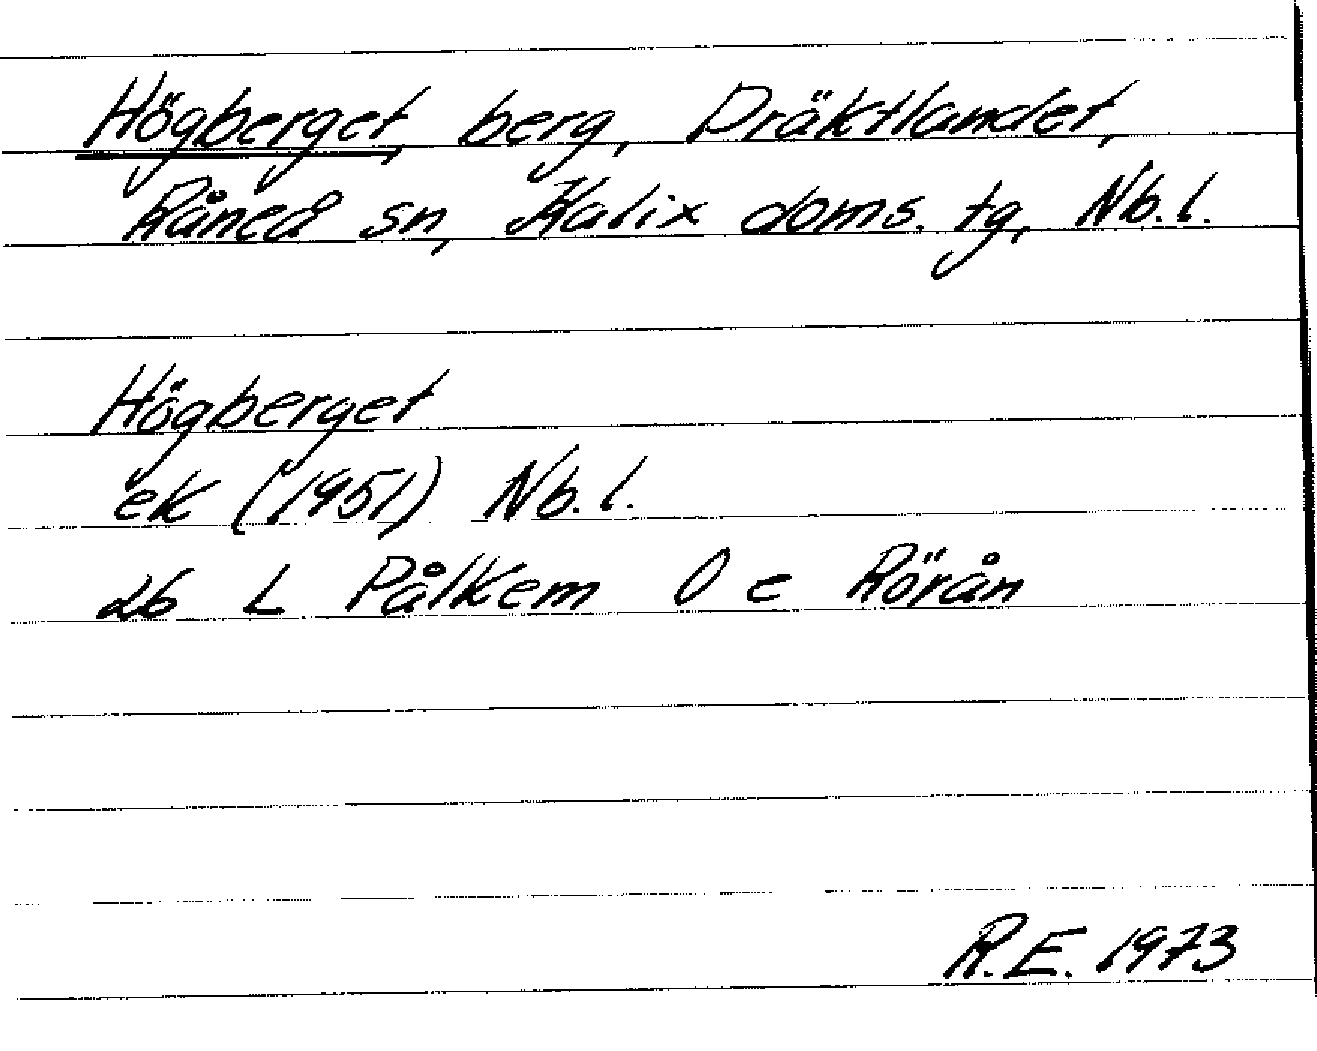 Högberget, berg, Präktlandet,
Råneå sn, Kalix doms. tg, Nb.l.
Högberget
ek (1951) Nb.l.
26 L Pålkem 0 e Rörån
R.E. 1973